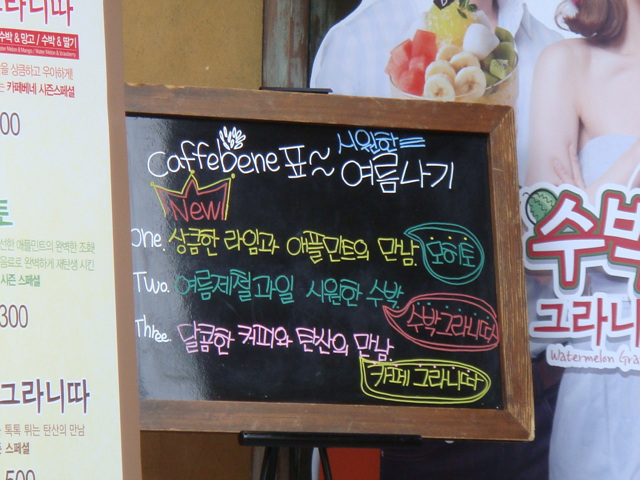 그라니따
수박 & 망고 / 수박 & 딸기
Water Melon & Mango / Water Melon & Strawberry
을 상큼하고 우아하게
는 카페베네 시즌스페셜
00
토
선한 애플민트의 완벽한 조화
음료로 완벽하게 재탄생 시킨
시즌 스페셜
300
그라니따
톡톡 튀는 탄산의 만남
스페셜
500
caffebene 표~ 시원한
여름나기
New!
One. 상큼한 라임과 애플민트의 만남. 모히토
Two. 여름제철과일 시원한 수박
수박그라니따
Three. 달콤한 커피와 탄산의 만남.
카페 그라니따
수박
그라니
Watermelon Gra